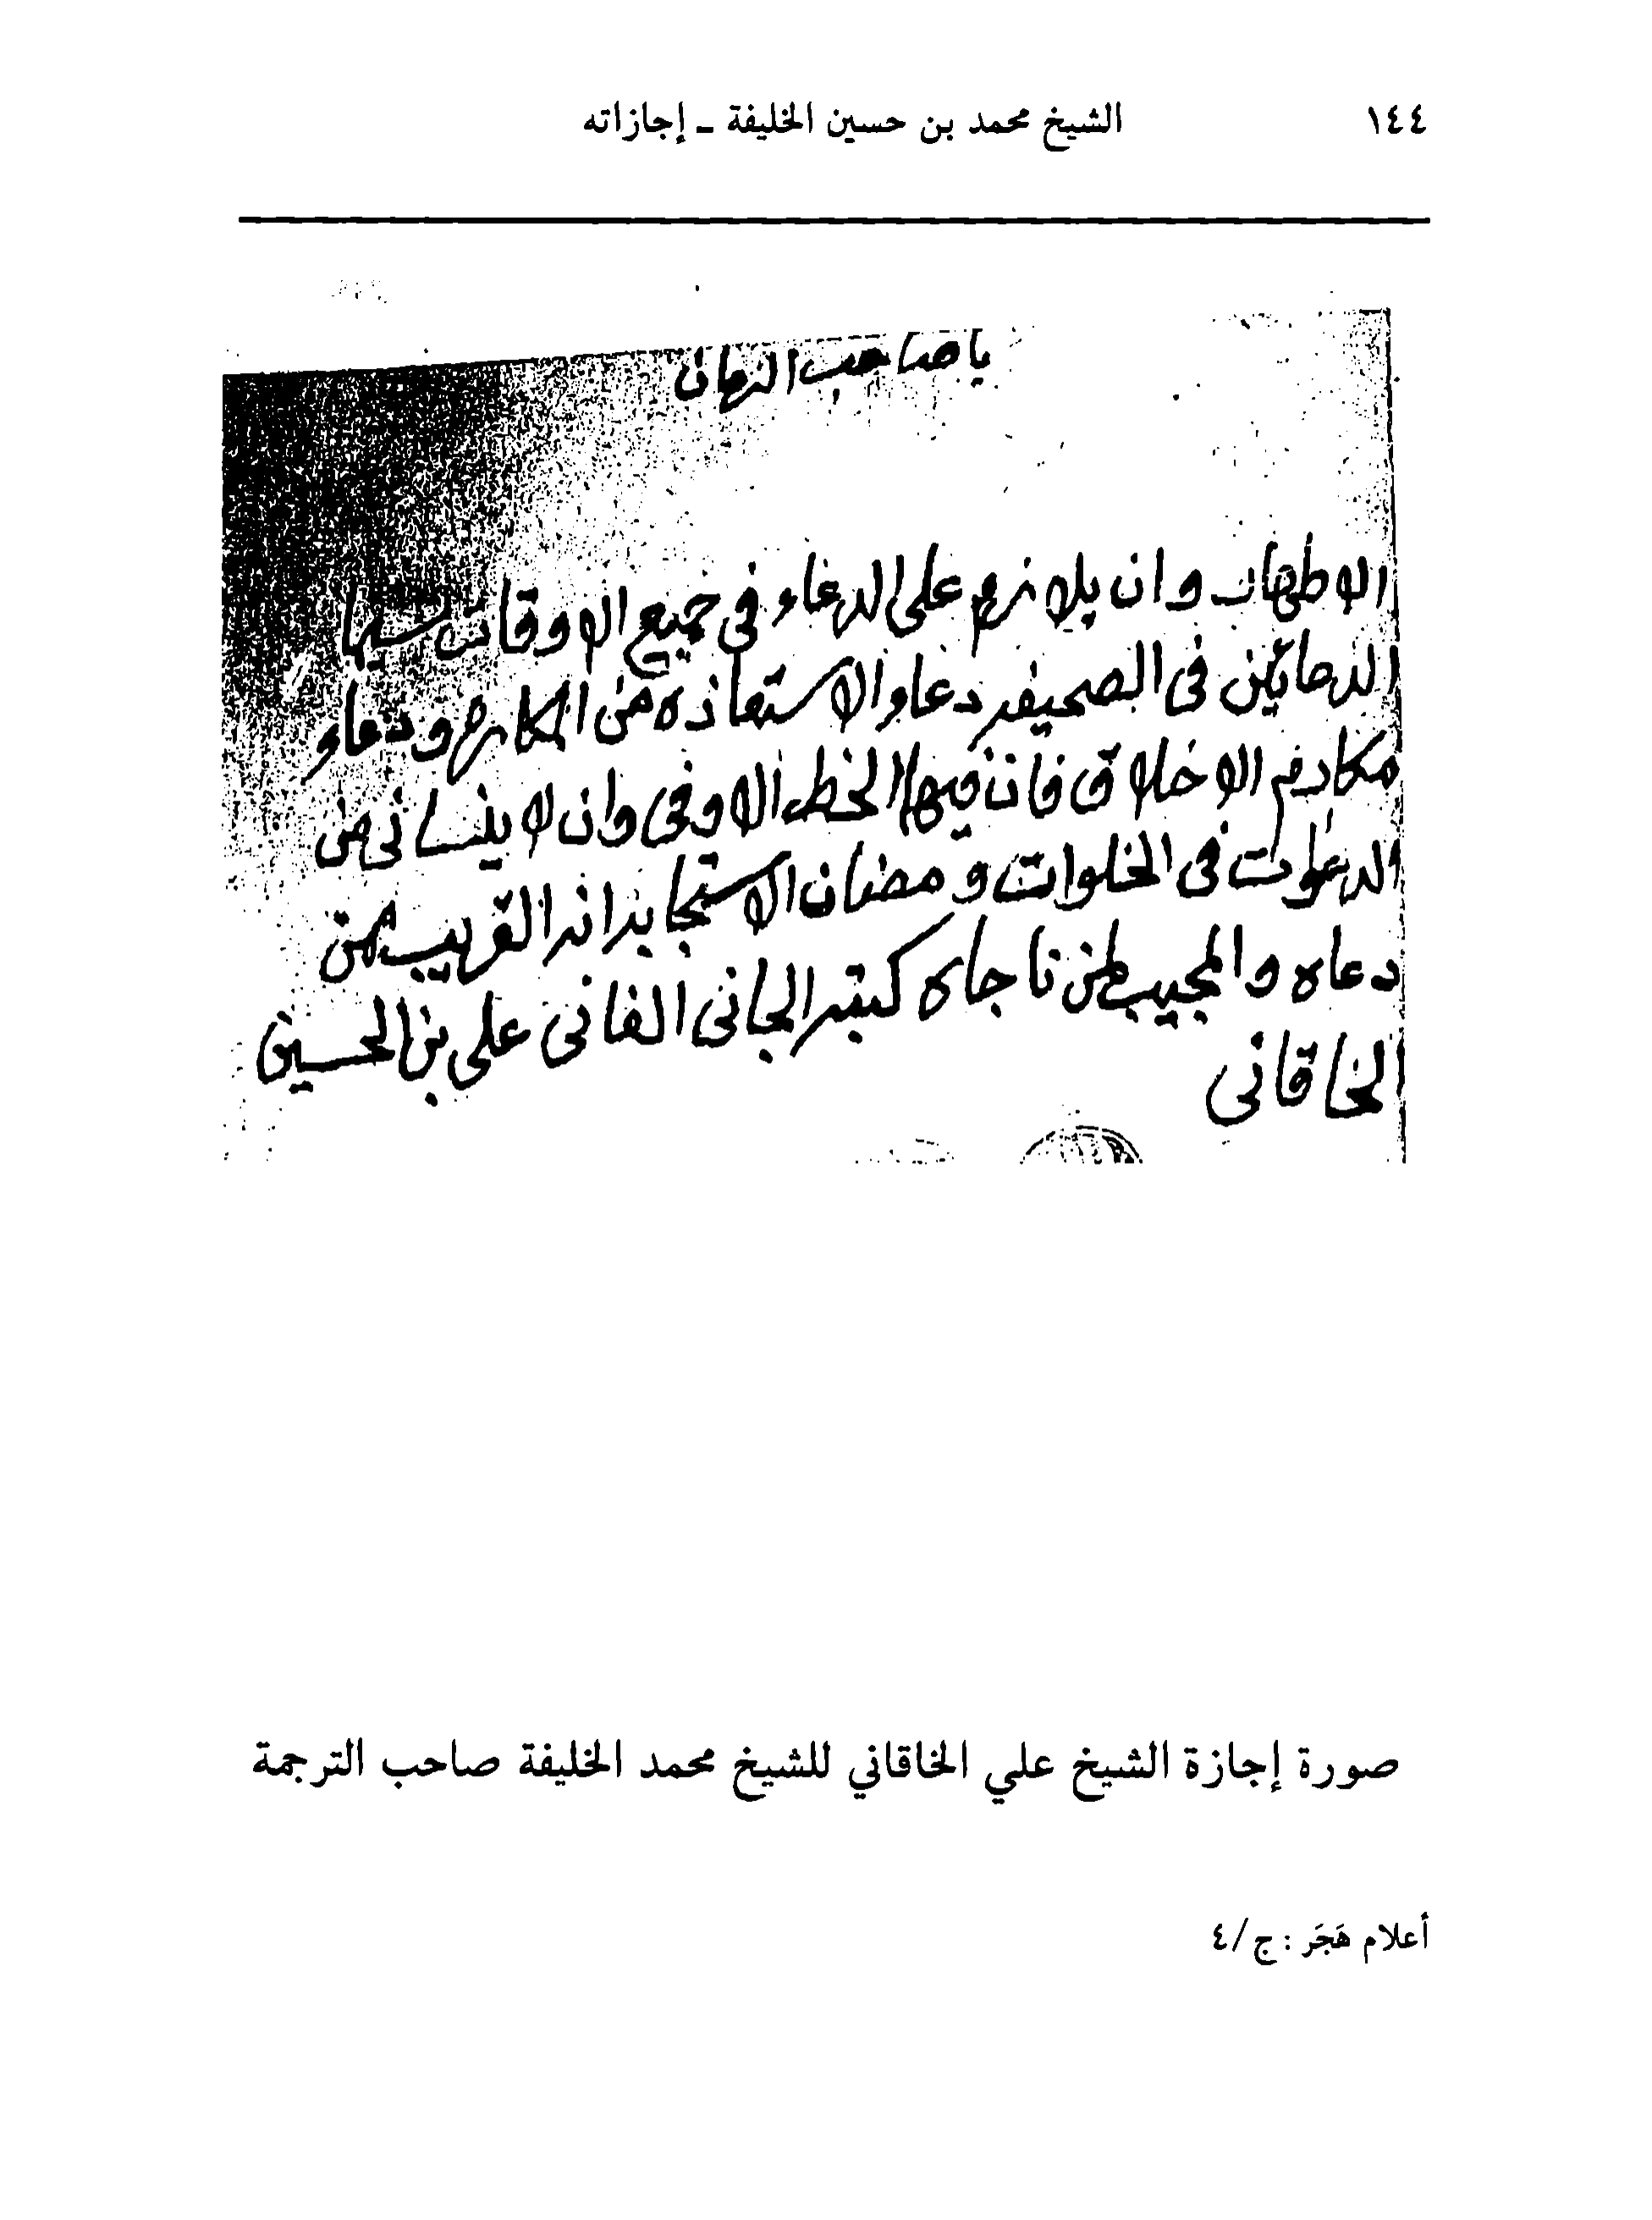 ١٤٤ الشيخ محمد بن حسين الخليفة ـ إجازاته
يا صاحب الزمان
الاطهار وان يلازم على الدعاء في جميع الاوقات سيما
الدعائين في الصحيفه دعاء الاستعاذه من المكاره ودعاء
مكارم الاخلاق فان فيها الحظ الاوفى وان لا ينساني من
الدعوات في الخلوات ومضان الاستجابه انه القريب ممن
دعاه والمجيب لمن ناجاه كتبه الجاني الفاني علي بن الحسين
الخاقاني
صورة إجازة الشيخ علي الخاقاني للشيخ محمد الخليفة صاحب الترجمة
أعلام هَجَر : ج/٤